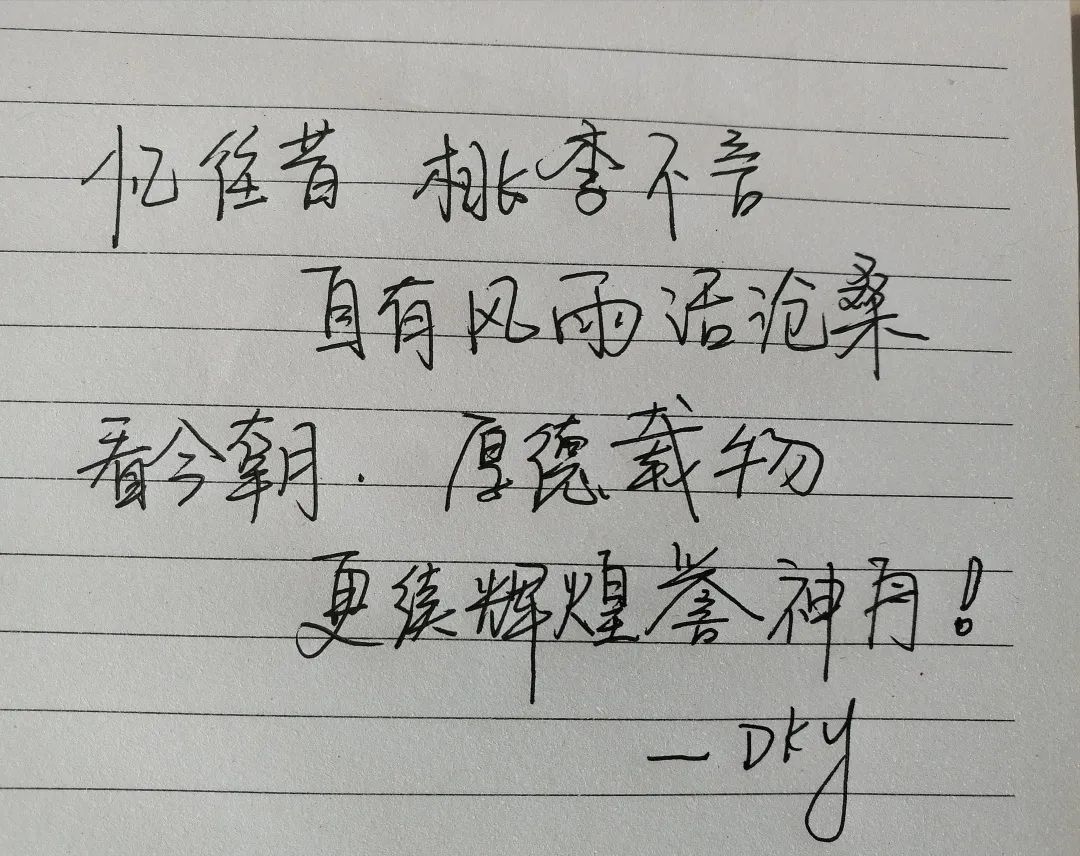 忆往昔 桃李不言
自有风雨话沧桑
看今朝. 厚德载物
更续辉煌誉神舟!
—DKY